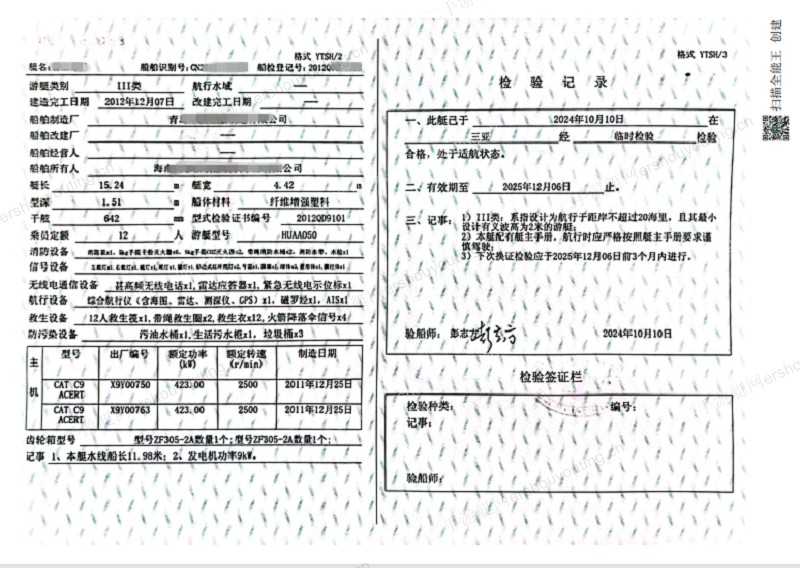 格式 YTSH/2
艇名:
船舶识别号:CN2
船检登记号:2012Q
游艇类别 III类 航行水域 —
建造完工日期 2012年12月07日 改建完工日期 —
船舶制造厂 青 公司
船舶改建厂 —
船舶经营人 —
船舶所有人 海南 公司
艇长 15.24 m 艇宽 4.42 m
型深 1.51 m 船体材料 纤维增强塑料
干舷 642 mm 型式检验证书编号 2012QD9101
乘员定额 12 人 游艇型号 HUAA050
消防设备
信号设备
无线电通信设备 甚高频无线电话x1,雷达应答器x1,紧急无线电示位标x1
航行设备 综合航行仪(含海图、雷达、测深仪、GPS)x1,磁罗经x1,AISx1
救生设备 12人救生筏x1,带绳救生圈x2,救生衣x12,火箭降落伞信号x4
防污染设备 污油水桶x1,生活污水柜x1,垃圾桶x3
主机
型号 出厂编号 额定功率(kW) 额定转速(r/min) 制造日期
CAT C9 ACERT X9Y00750 423.00 2500 2011年12月25日
CAT C9 ACERT X9Y00763 423.00 2500 2011年12月25日
齿轮箱型号 型号ZF305-2A数量1个;型号ZF305-2A数量1个;
记事 1、本艇水线船长11.98米;2、发电机功率9kW。
格式 YTSH/3
检验记录
一、此艇已于 2024年10月10日 在
三亚 经 临时检验 检验
合格,处于适航状态。
二、有效期至 2025年12月06日 止。
三、记事:1) III类:系指设计为航行于距岸不超过20海里,且其最小
设计有义波高为2米的游艇;
2) 本艇配有艇主手册,航行时应严格按照艇主手册要求谨
慎驾驶;
3) 下次换证检验应于2025年12月06日前3个月内进行。
验船师: 彭志方 2024年10月10日
检验签证栏
检验种类: 编号:
记事:
验船师:
扫描全能王 创建
二手游艇网 ershouyouting.cn